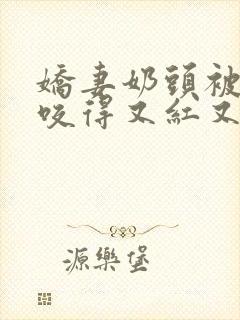 嬌妻奶頭被
咬得又紅又
源樂堡